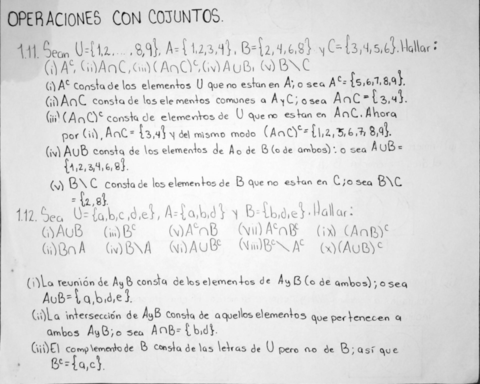 OPERACIONES CON COJUNTOS.
1.11. Sean U={1,2,...,8,9}, A={1,2,3,4}, B={2,4,6,8} y C={3,4,5,6}. Hallar:
(i) Aᶜ, (ii) A∩C, (iii) (A∩C)ᶜ, (iv) A∪B, (v) B\C
(i) Aᶜ consta de los elementos U que no estan en A; o sea Aᶜ={5,6,7,8,9}.
(ii) A∩C consta de los elementos comunes a A y C; o sea A∩C={3,4}.
(iii) (A∩C)ᶜ consta de elementos de U que no estan en A∩C. Ahora
por (ii), A∩C={3,4} y del mismo modo (A∩C)ᶜ={1,2,5,6,7,8,9}.
(iv) A∪B consta de los elementos de A o de B (o de ambos): o sea A∪B=
{1,2,3,4,6,8}.
(v) B\C consta de los elementos de B que no estan en C; o sea B\C
={2,8}.
1.12. Sea U={a,b,c,d,e}, A={a,b,d} y B={b,d,e}. Hallar:
(i) A∪B (iii) Bᶜ (v) Aᶜ∩B (vii) Aᶜ∩Bᶜ (ix) (A∩B)ᶜ
(ii) B∩A (iv) B\A (vi) A∪Bᶜ (viii) Bᶜ\Aᶜ (x) (A∪B)ᶜ
(i) La reunión de A y B consta de los elementos de A y B (o de ambos); o sea
A∪B={a,b,d,e}.
(ii) La intersección de A y B consta de aquellos elementos que pertenecen a
ambos A y B; o sea A∩B={b,d}.
(iii) El complemento de B consta de las letras de U pero no de B; así que
Bᶜ={a,c}.